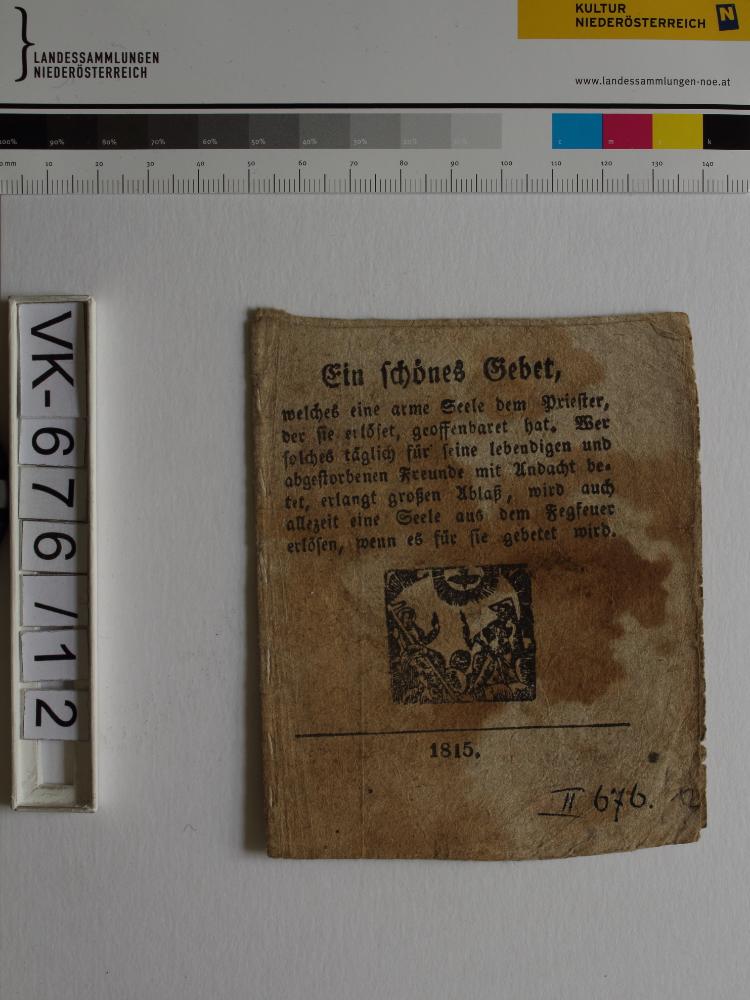 KULTUR
NIEDERÖSTERREICH
N
LANDESSAMMLUNGEN
NIEDERÖSTERREICH
www.landessammlungen-noe.at
100% 90% 80% 70% 60% 50% 40% 30% 20% 10% c m y k
0 mm 10 20 30 40 50 60 70 80 90 100 110 120 130 140
VK-676/12
Ein schönes Gebet,
welches eine arme Seele dem Priester,
der sie erlöset, geoffenbaret hat. Wer
solches täglich für seine lebendigen und
abgestorbenen Freunde mit Andacht be-
tet, erlangt großen Ablaß, wird auch
allezeit eine Seele aus dem Fegfeuer
erlösen, wenn es für sie gebetet wird.
1815.
II 676. 12